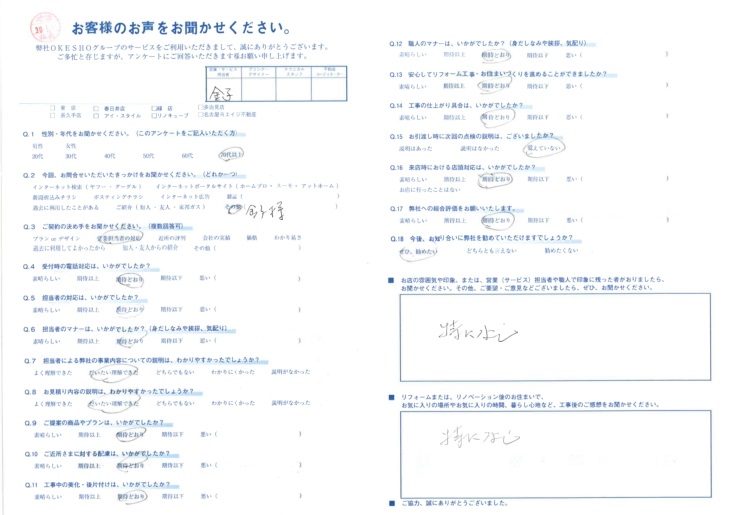 お客様のお声をお聞かせください。
弊社OKESHOグループのサービスをご利用いただきまして、誠にありがとうございます。
ご多忙と存じますが、アンケートにご回答いただきます様お願い申し上げます。
金子
Q.1 性別・年代をお聞かせください。（このアンケートをご記入いただく方）
男性 女性
20代 30代 40代 50代 60代 70代以上
Q.2 今回、お問合せいただいたきっかけをお聞かせください。（どれか一つ）
インターネット検索（ヤフー・グーグル） インターネットポータルサイト（ホームプロ・スーモ・アットホーム）
新聞折込みチラシ ポスティングチラシ インターネット広告 雑誌（ ）
過去に利用したことがある ご紹介（知人・友人・東邦ガス） その他（ 金子様 ）
Q.3 ご契約の決め手をお聞かせください。（複数回答可）
プランorデザイン 営業担当者の対応 近所の評判 会社の実績 価格 わかり易さ
過去に利用してよかったから 知人・友人からの紹介 その他（ ）
Q.4 受付時の電話対応は、いかがでしたか？
素晴らしい 期待以上 期待どおり 期待以下 悪い（ ）
Q.5 担当者の対応は、いかがでしたか？
素晴らしい 期待以上 期待どおり 期待以下 悪い（ ）
Q.6 担当者のマナーは、いかがでしたか？（身だしなみや挨拶、気配り）
素晴らしい 期待以上 期待どおり 期待以下 悪い（ ）
Q.7 担当者による弊社の事業内容についての説明は、わかりやすかったでしょうか？
よく理解できた だいたい理解できた どちらでもない わかりにくかった 説明がなかった
Q.8 お見積り内容の説明は、わかりやすかったでしょうか？
よく理解できた だいたい理解できた どちらでもない わかりにくかった 説明がなかった
Q.9 ご提案の商品やプランは、いかがでしたか？
素晴らしい 期待以上 期待どおり 期待以下 悪い（ ）
Q.10 ご近所さまに対する配慮は、いかがでしたか？
素晴らしい 期待以上 期待どおり 期待以下 悪い（ ）
Q.11 工事中の美化・後片付けは、いかがでしたか？
素晴らしい 期待以上 期待どおり 期待以下 悪い（ ）
Q.12 職人のマナーは、いかがでしたか？（身だしなみや挨拶、気配り）
素晴らしい 期待以上 期待どおり 期待以下 悪い（ ）
Q.13 安心してリフォーム工事・お住まいづくりを進めることができましたか？
素晴らしい 期待以上 期待どおり 期待以下 悪い（ ）
Q.14 工事の仕上がり具合は、いかがでしたか？
素晴らしい 期待以上 期待どおり 期待以下 悪い（ ）
Q.15 お引渡し時に次回の点検の説明は、ございましたか？
説明はあった 説明はなかった 覚えていない
Q.16 来店時における店頭対応は、いかがでしたか？
素晴らしい 期待以上 期待どおり 期待以下 悪い（ ）
お店に行ったことはない
Q.17 弊社への総合評価をお願いいたします。
素晴らしい 期待以上 期待どおり 期待以下 悪い（ ）
Q.18 今後、お知り合いに弊社を勧めていただけますでしょうか？
ぜひ、勧めたい どちらとも言えない 勧めたくない
■ お店の雰囲気や印象、または、営業（サービス）担当者や職人で印象に残った者がおりましたら、
お聞かせください。その他、ご要望・ご意見などございましたら、ぜひ、お聞かせください。
特になし
■ リフォームまたは、リノベーション後のお住まいで、
お気に入りの場所やお気に入りの時間、暮らし心地など、工事後のご感想をお聞かせください。
特になし
■ ご協力、誠にありがとうございました。